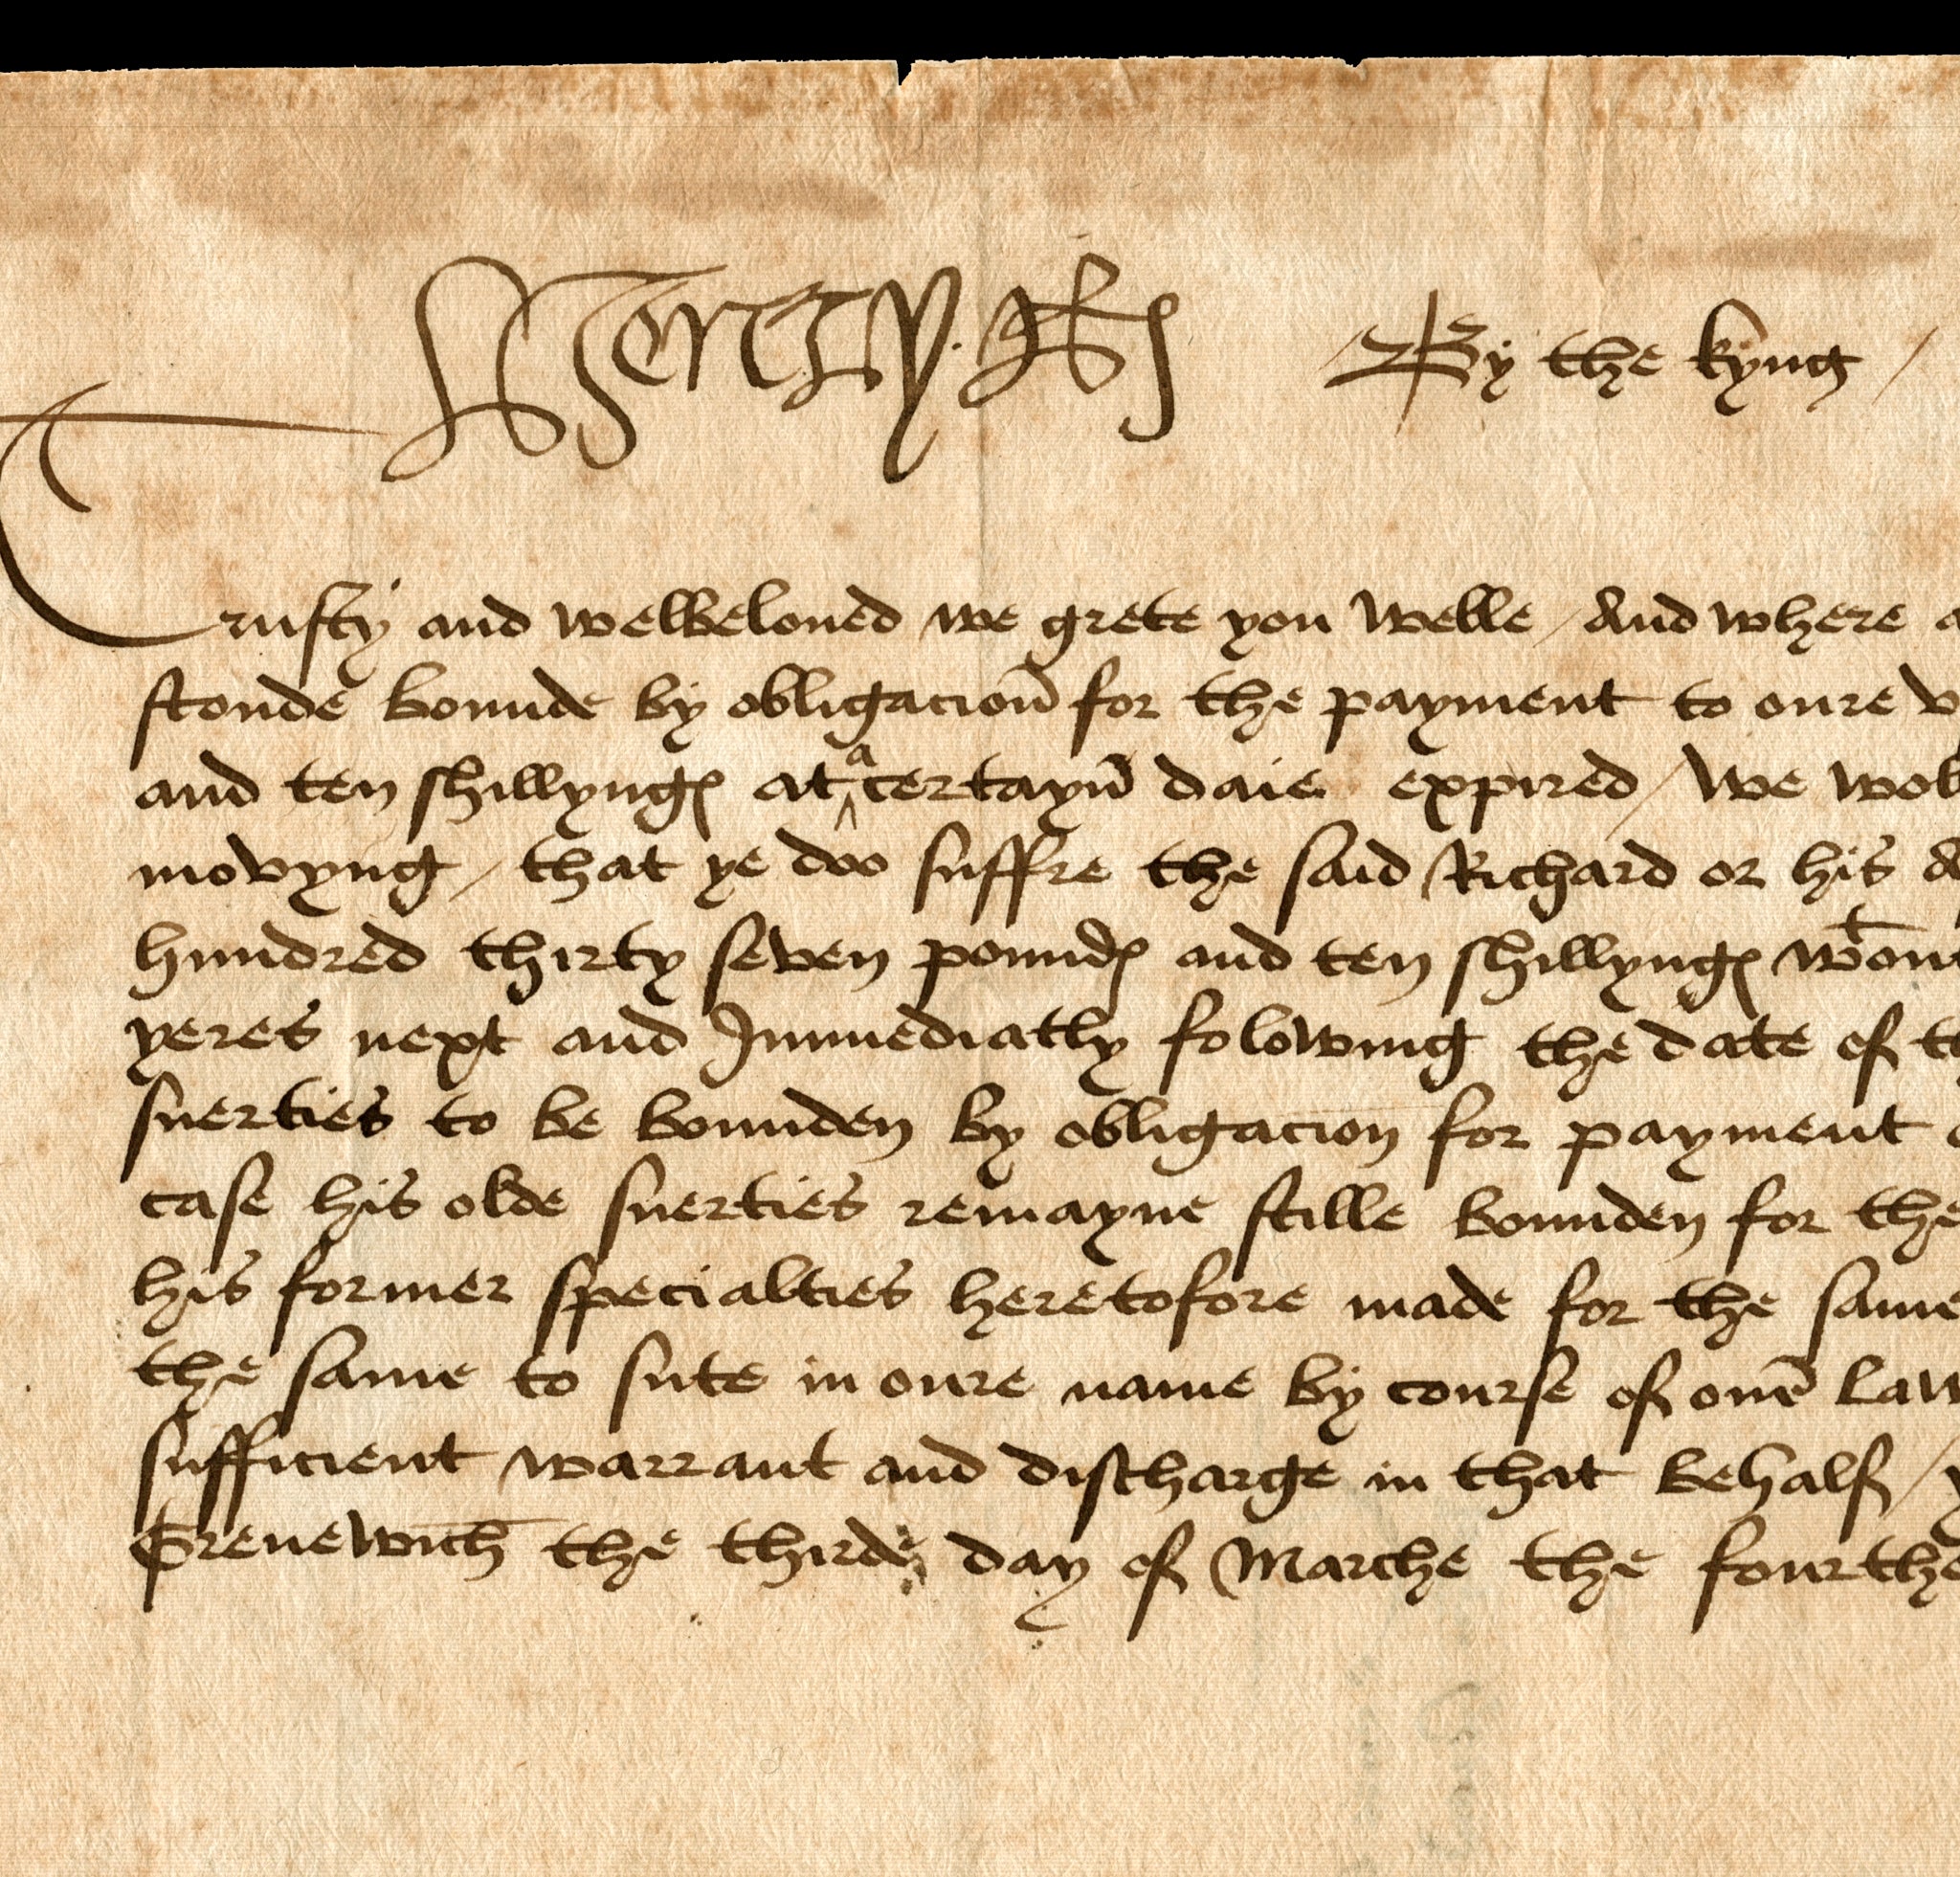 Henry R By the kyng /
Trusty and welbeloued we grete you welle / And where
stonde bounde by obligacion̄ for the payment to oure
and ten shillyngꝭ at a certayn̄ daie expired / we wol
movyng / that ye doo suffre the said Richard or his
hundred thirty seven poundꝭ and ten shillyngꝭ wᵗ
yeres next and Immediatly folowing the date of
suerties to be bounden by obligacion for payment
case his olde suerties remayne stille bounden for the
his former specialties heretofore made for the same
the same to sute in oure name by course of our̄ law
sufficient warrant and discharge in that behalf /
Grenewich̄ the thirde day of Marche the fourthe